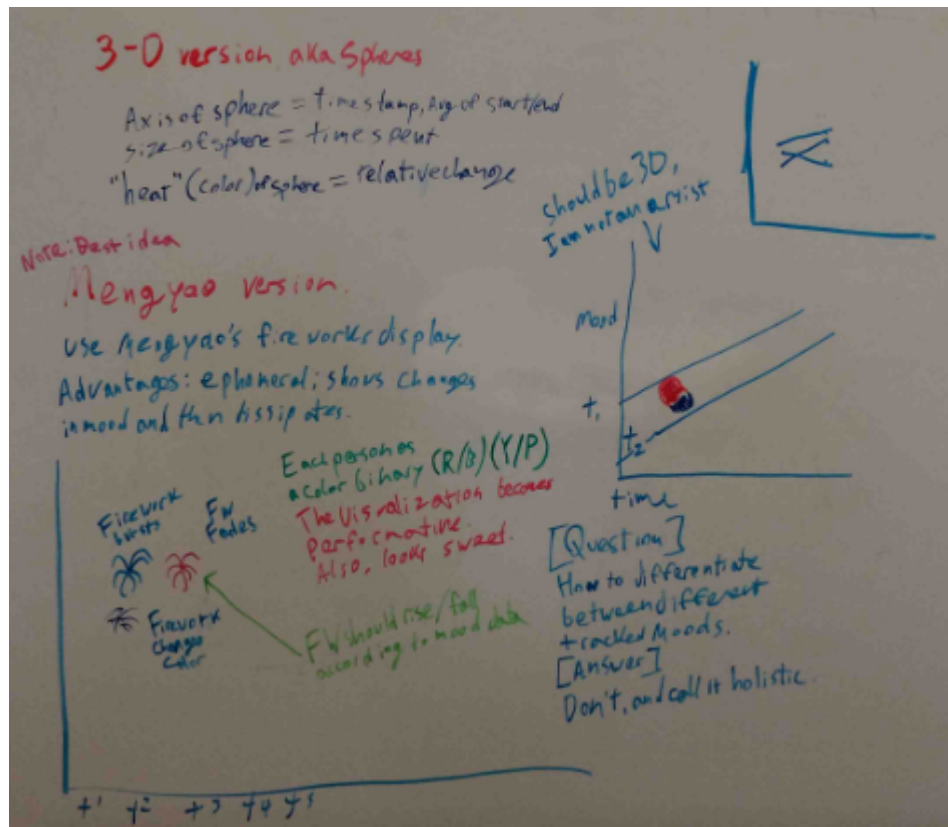 3-D version aka Spheres
Axis of sphere = timestamp, Avg of start/end
size of sphere = time spent
"heat" (color) of sphere = relative change
should be 3D,
I am not an artist
Note: Best idea
Mengyao version.
use Mengyao's fireworks display.
Advantages: ephemeral; shows changes
in mood and then dissipates.
Mood
t1
t2
time
Each person as
a color binary (R/B) (Y/P)
The Visualization becomes
performative.
Also, looks sweet.
Firework
bursts
FW
Fades
Firework
changes
color
FW should rise/fall
according to mood data
[Question]
How to differentiate
between different
tracked moods.
[Answer]
Don't, and call it holistic.
t1 t2 t3 t4 t5